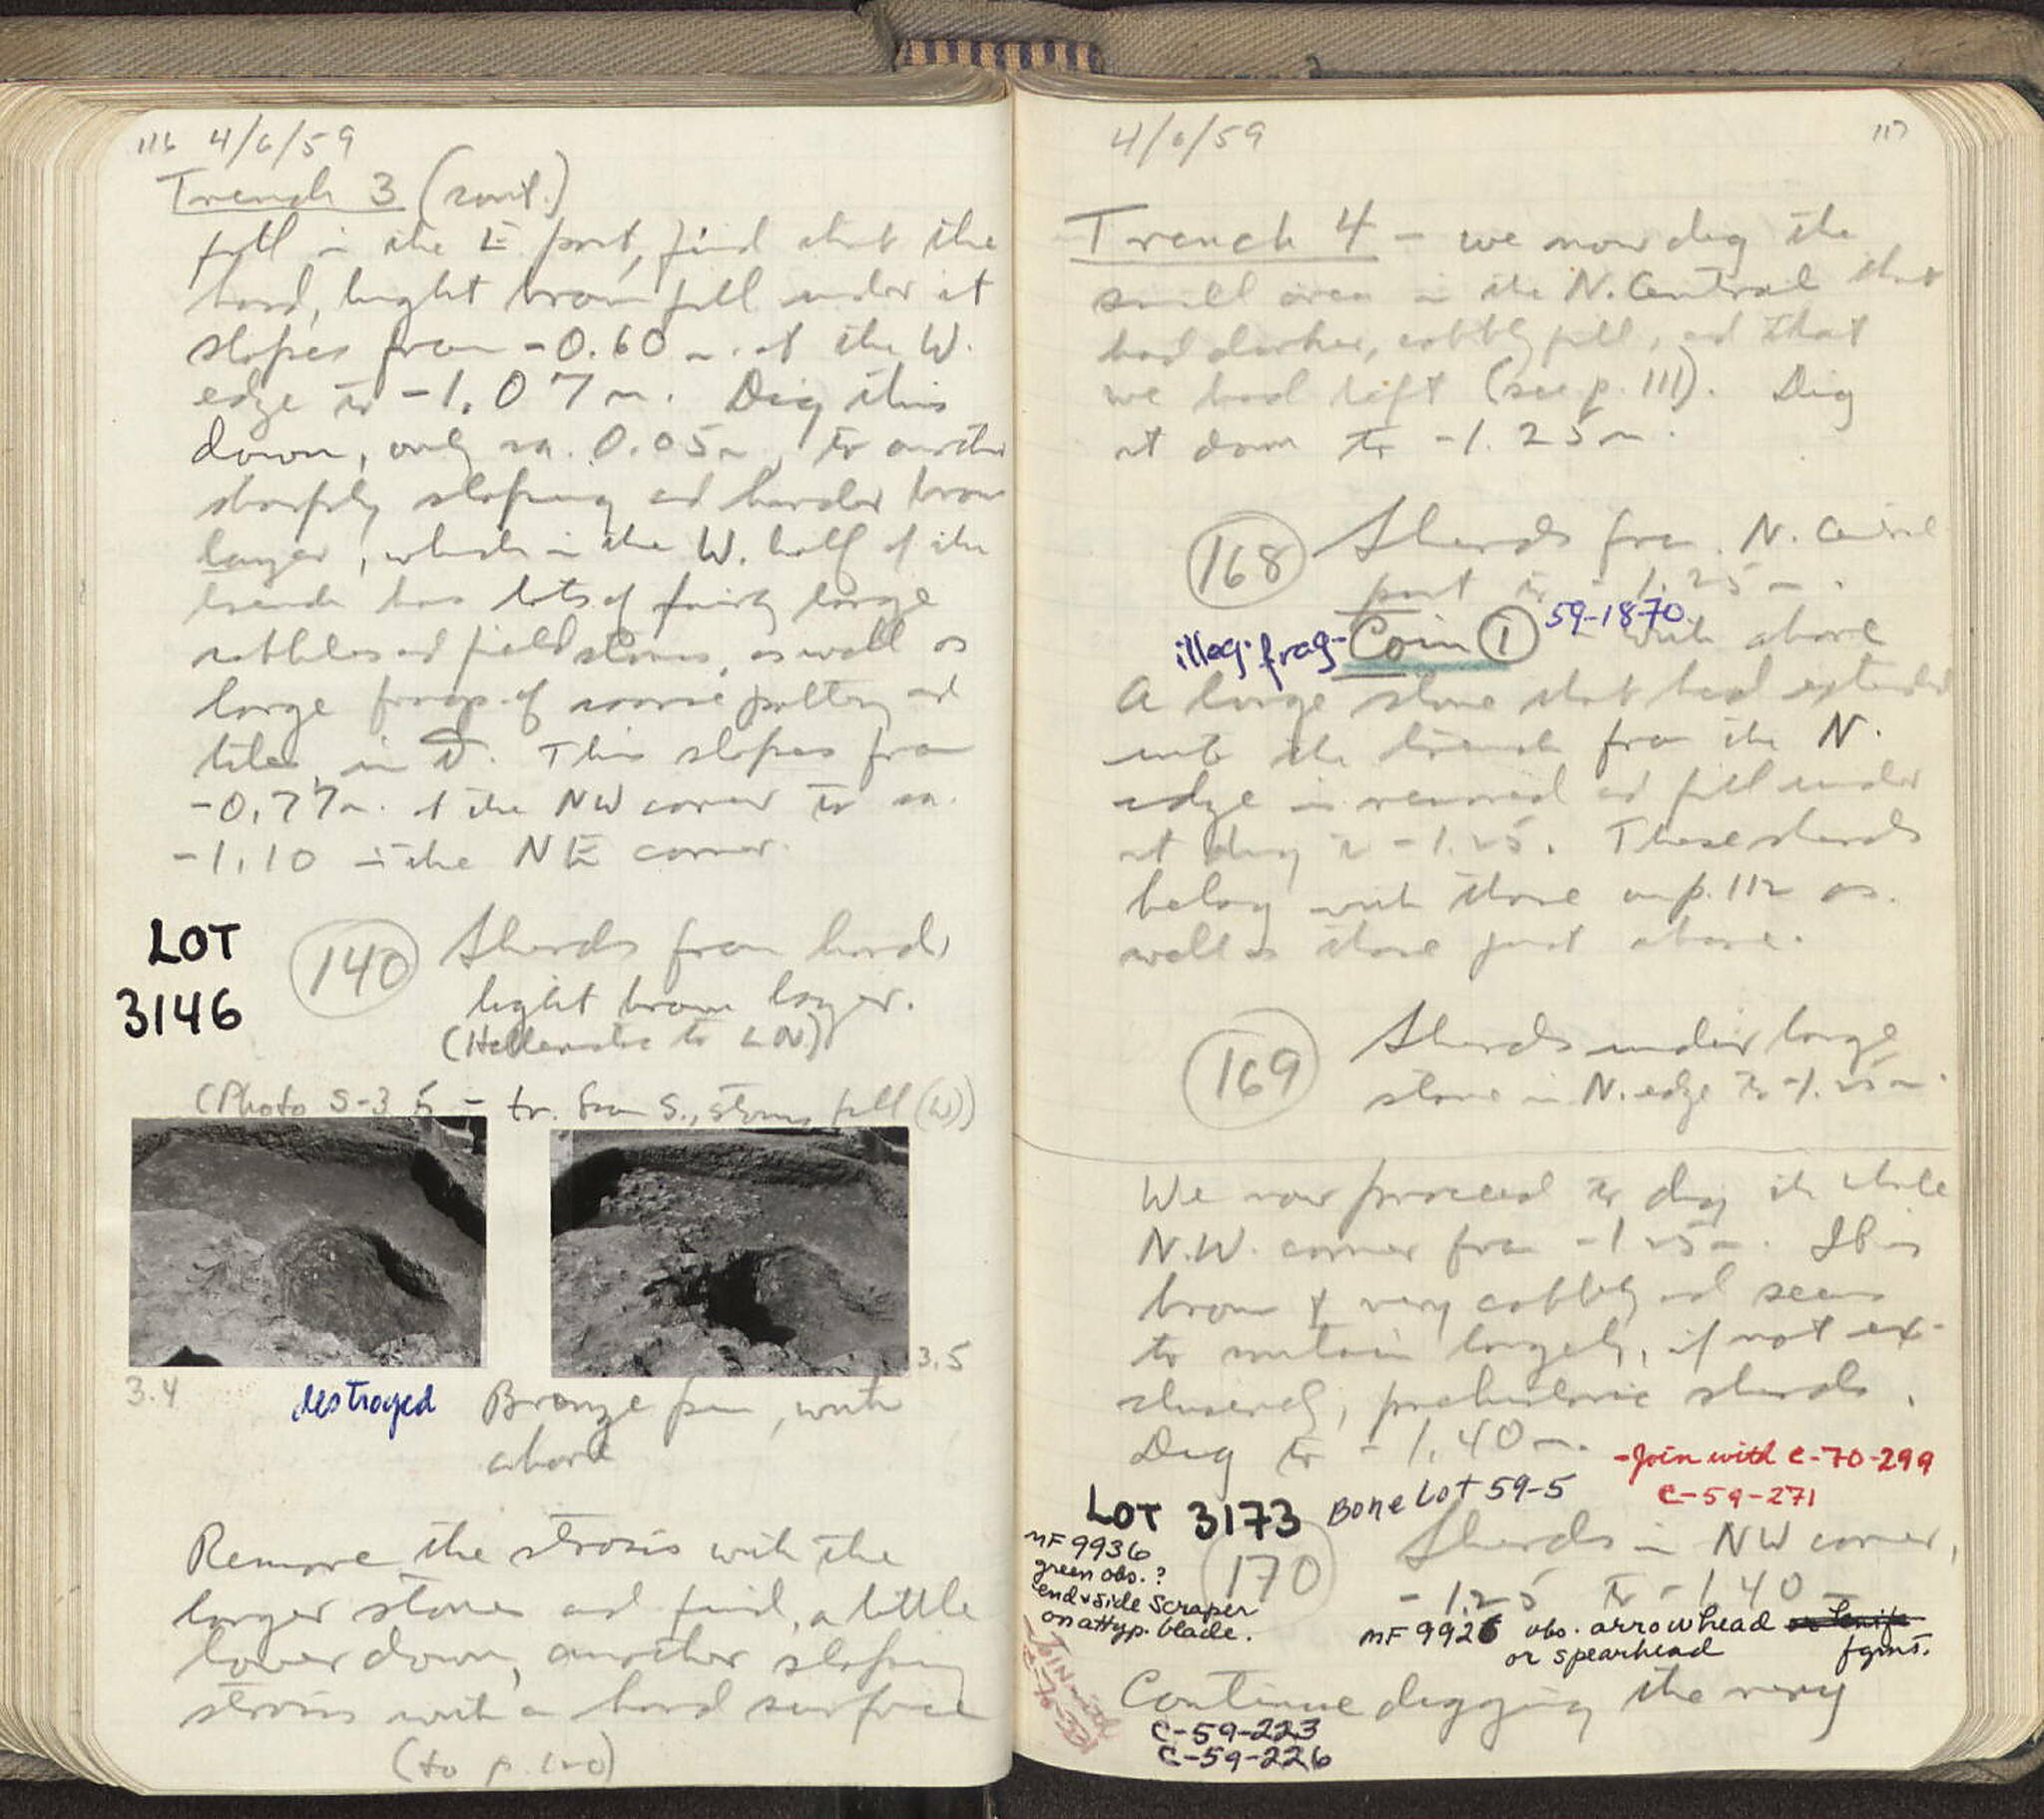 116 4/6/59
Trench 3 (cont.)
fill in the E part, find that the
hard, light brown fill under it
slopes from -0.60 m. at the W.
edge to -1.07 m. Dig this
down, only ca. 0.05 m, to another
sharply sloping and harder brown
layer, which in the W. half of the
trench has lots of fairly large
cobbles and field stones, as well as
large frags. of coarse pottery and
tiles, in it. This slopes from
-0.77 m. at the NW corner to ca.
-1.10 in the NE corner.
LOT
3146
140 Sherds from hard,
light brown layer.
(Hellenistic to LN)
(Photo S-3 5 - tr. from S., stony fill (W))
3.4
3.5
destroyed
Bronze pin, with
above
Remove the strosis with the
larger stones and find, a little
lower down, another sloping
strosis with a hard surface
(to p. 120)
4/6/59 117
Trench 4 - we now dig the
small area in the N. Central that
had darker, cobbly fill, and that
we had left (see p. 111). Dig
it down to -1.25 m.
168 Sherds from N. Central
part to -1.25 m.
illeg. frag- Coin 1 59-1870 with above
A large stone that had extended
into the trench from the N.
edge is removed and fill under
it dug to -1.25. These sherds
belong with those on p. 112 as
well as those just above.
169 Sherds under large
stone in N. edge to -1.25 m.
We now proceed to dig the whole
N.W. corner from -1.25 m. It is
brown & very cobbly and seems
to contain largely, if not ex-
clusively, prehistoric sherds.
Dig to -1.40 m.
-Join with C-70-299
C-59-271
LOT 3173 Bone Lot 59-5
170 Sherds in NW corner,
-1.25 to -1.40 m
MF 9936
green obs.?
end & side scraper
on attyp. blade.
MF 9926 obs. arrowhead
or spearhead fgms.
Join with
Continue digging the very
C-59-223
C-59-226